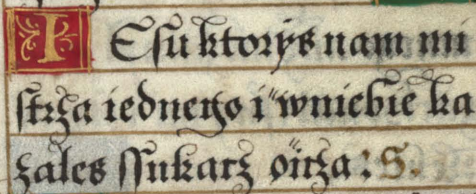 IEſu ktorẏs nam mi
ſtrża iednego i wniebie ka
zales ſſukacż oi̋cża : S.